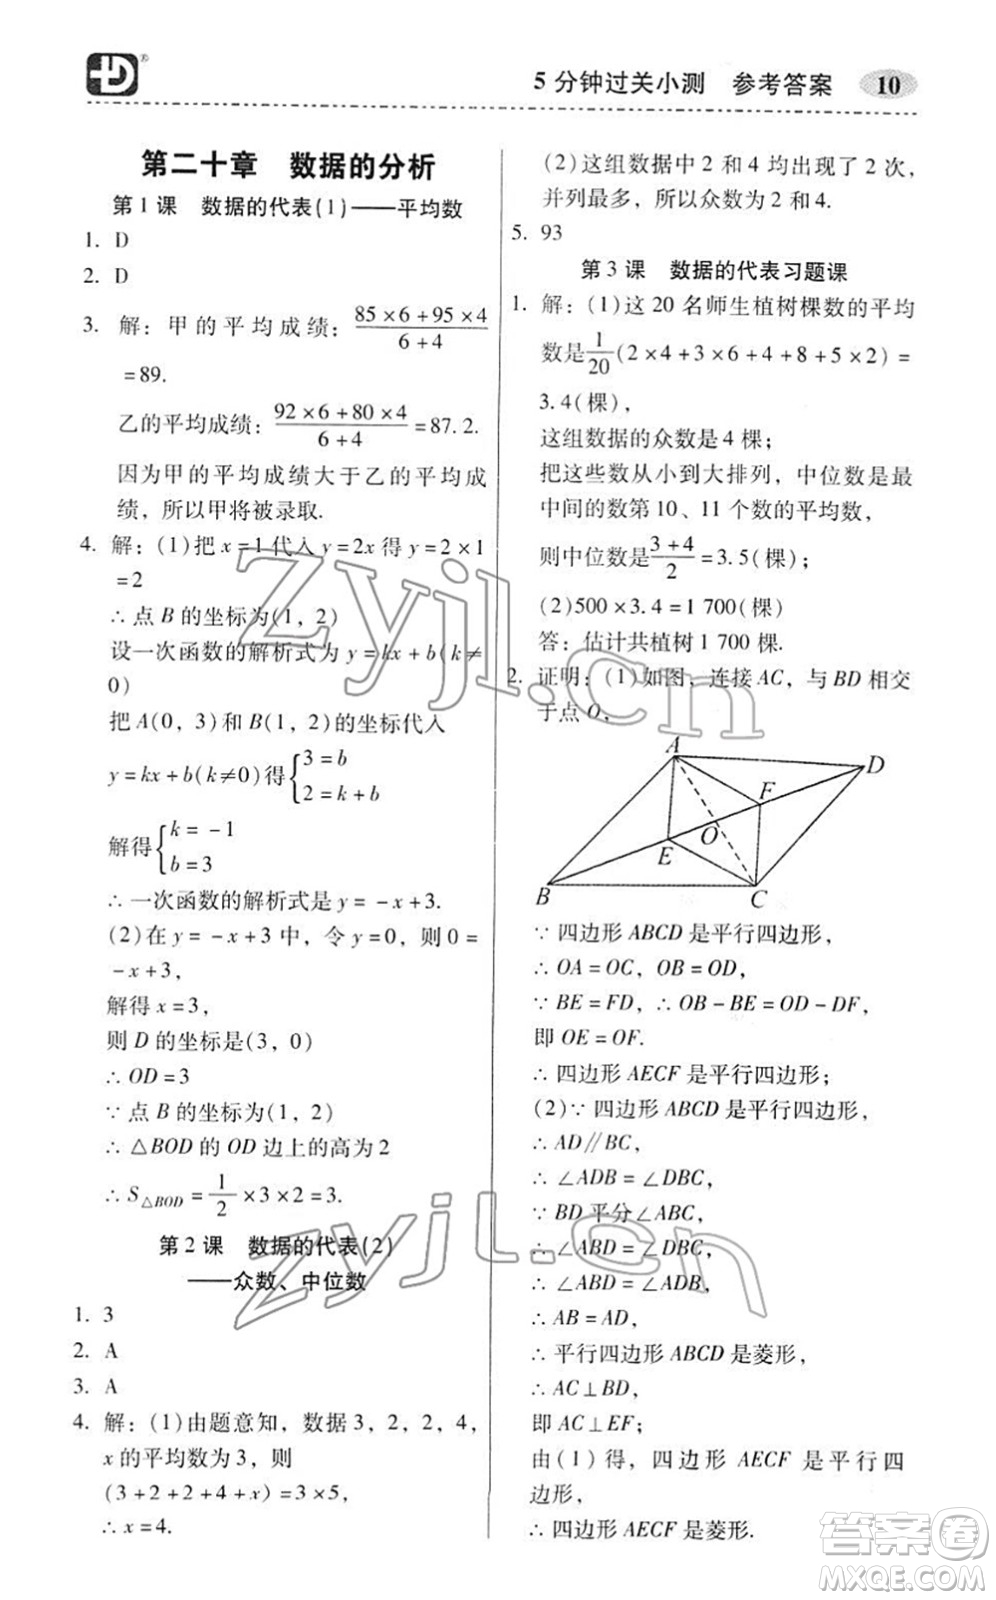 5分钟过关小测 参考答案 10
第二十章 数据的分析
第1课 数据的代表(1)——平均数
1. D
2. D
3. 解:甲的平均成绩:(85×6+95×4)/(6+4)
=89.
乙的平均成绩:(92×6+80×4)/(6+4)=87.2.
因为甲的平均成绩大于乙的平均成
绩,所以甲将被录取.
4. 解:(1)把x=1代入y=2x得y=2×1
=2
∴点B的坐标为(1,2)
设一次函数的解析式为y=kx+b(k≠
0)
把A(0,3)和B(1,2)的坐标代入
y=kx+b(k≠0)得{3=b
2=k+b
解得{k=-1
b=3
∴一次函数的解析式是y=-x+3.
(2)在y=-x+3中,令y=0,则0=
-x+3,
解得x=3,
则D的坐标是(3,0)
∴OD=3
∵点B的坐标为(1,2)
∴△BOD的OD边上的高为2
∴S△BOD=1/2×3×2=3.
第2课 数据的代表(2)
——众数、中位数
1. 3
2. A
3. A
4. 解:(1)由题意知,数据3,2,2,4,
x的平均数为3,则
(3+2+2+4+x)=3×5,
∴x=4.
(2)这组数据中2和4均出现了2次,
并列最多,所以众数为2和4.
5. 93
第3课 数据的代表习题课
1. 解:(1)这20名师生植树棵数的平均
数是1/20(2×4+3×6+4+8+5×2)=
3.4(棵),
这组数据的众数是4棵;
把这些数从小到大排列,中位数是最
中间的数第10、11个数的平均数,
则中位数是(3+4)/2=3.5(棵);
(2)500×3.4=1 700(棵)
答:估计共植树1 700棵.
2. 证明:(1)如图,连接AC,与BD相交
于点O,
A
D
F
O
E
B
C
∵四边形ABCD是平行四边形,
∴OA=OC,OB=OD,
∵BE=FD,∴OB-BE=OD-DF,
即OE=OF.
∴四边形AECF是平行四边形;
(2)∵四边形ABCD是平行四边形,
∴AD∥BC,
∴∠ADB=∠DBC,
∵BD平分∠ABC,
∴∠ABD=∠DBC,
∴∠ABD=∠ADB,
∴AB=AD,
∴平行四边形ABCD是菱形,
∴AC⊥BD,
即AC⊥EF;
由(1)得,四边形AECF是平行四
边形,
∴四边形AECF是菱形.
zyjl.cn
zyjl.cn
答案圈
MXQE.COM